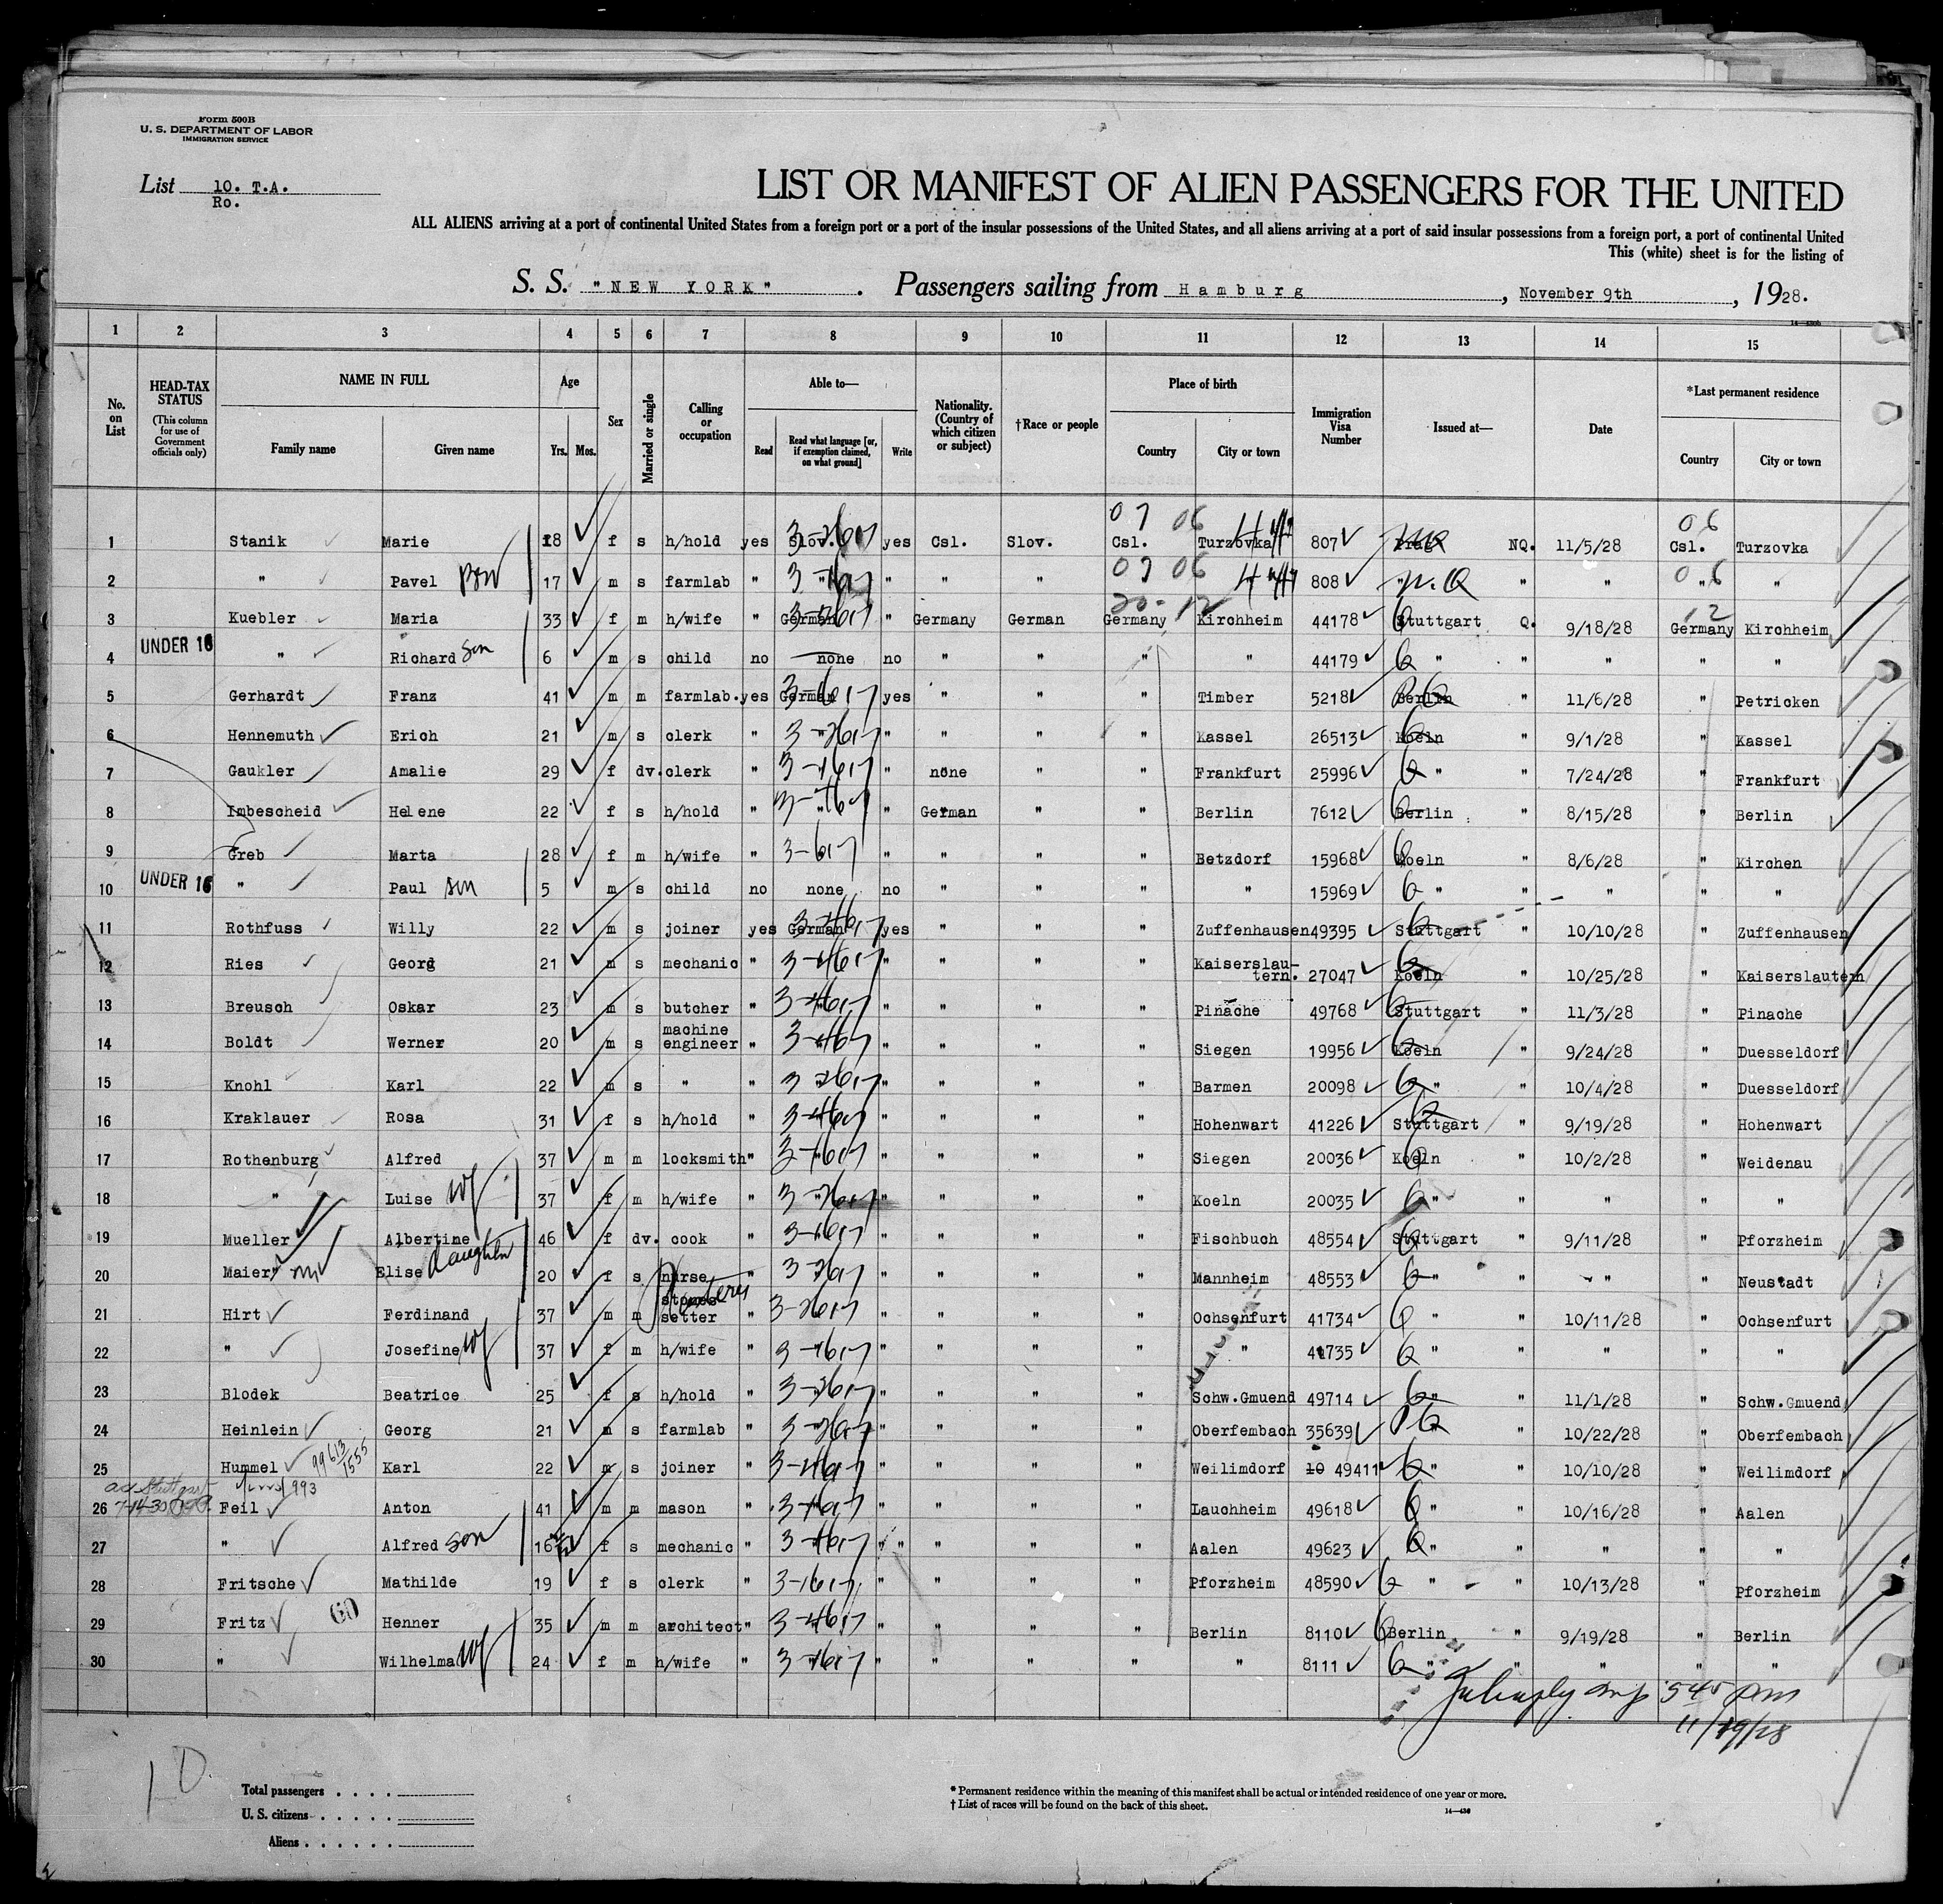 Form 500B
U. S. DEPARTMENT OF LABOR
IMMIGRATION SERVICE
List 10. T.A.
Ro.
LIST OR MANIFEST OF ALIEN PASSENGERS FOR THE UNITED
ALL ALIENS arriving at a port of continental United States from a foreign port or a port of the insular possessions of the United States, and all aliens arriving at a port of said insular possessions from a foreign port, a port of continental United
This (white) sheet is for the listing of
S. S. "NEW YORK". Passengers sailing from Hamburg, November 9th, 1928.
14—430b
1 2 3 4 5 6 7 8 9 10 11 12 13 14 15
No. on List
HEAD-TAX STATUS (This column for use of Government officials only)
NAME IN FULL
Family name Given name
Age
Yrs. Mos.
Sex
Married or single
Calling or occupation
Able to—
Read Read what language [or, if exemption claimed, on what ground] Write
Nationality. (Country of which citizen or subject)
†Race or people
Place of birth
Country City or town
Immigration Visa Number
Issued at—
Date
*Last permanent residence
Country City or town
07 06 06
1 Stanik Marie 18 f s h/hold yes Slov. yes Csl. Slov. Csl. Turzovka 807 NQ. 11/5/28 Csl. Turzovka
07 06 06
2 " Pavel 17 m s farmlab " " " " " " 808 " " " " "
20-12 12
3 Kuebler Maria 33 f m h/wife " German " Germany German Germany Kirchheim 44178 Stuttgart Q. 9/18/28 Germany Kirchheim
4 UNDER 16 " Richard son 6 m s child no none no " " " " 44179 " " " " "
5 Gerhardt Franz 41 m m farmlab. yes German yes " " " Timber 5218 Berlin " 11/6/28 " Petricken
6 Hennemuth Erich 21 m s clerk " " " " " " Kassel 26513 Koeln " 9/1/28 " Kassel
7 Gaukler Amalie 29 f dv. clerk " " " none " " Frankfurt 25996 " " 7/24/28 " Frankfurt
8 Imbescheid Helene 22 f s h/hold " " " German " " Berlin 7612 Berlin " 8/15/28 " Berlin
9 Greb Marta 28 f m h/wife " " " " " " Betzdorf 15968 Koeln " 8/6/28 " Kirchen
10 UNDER 16 " Paul son 5 m s child no none no " " " " 15969 " " " " "
11 Rothfuss Willy 22 m s joiner yes German yes " " " Zuffenhausen 49395 Stuttgart " 10/10/28 " Zuffenhausen
12 Ries Georg 21 m s mechanic " " " " " " Kaiserslau-tern. 27047 Koeln " 10/25/28 " Kaiserslautern
13 Breusch Oskar 23 m s butcher " " " " " " Pinache 49768 Stuttgart " 11/3/28 " Pinache
14 Boldt Werner 20 m s machine engineer " " " " " " Siegen 19956 Koeln " 9/24/28 " Duesseldorf
15 Knohl Karl 22 m s " " " " " " " Barmen 20098 " " 10/4/28 " Duesseldorf
16 Kraklauer Rosa 31 f s h/hold " " " " " " Hohenwart 41226 Stuttgart " 9/19/28 " Hohenwart
17 Rothenburg Alfred 37 m m locksmith " " " " " " Siegen 20036 Koeln " 10/2/28 " Weidenau
18 " Luise wf 37 f m h/wife " " " " " " Koeln 20035 " " " " "
19 Mueller Albertine 46 f dv. cook " " " " " " Fischbuch 48554 Stuttgart " 9/11/28 " Pforzheim
20 Maier Elise daughter 20 f s nurse " " " " " " Mannheim 48553 " " " " Neustadt
21 Hirt Ferdinand 37 m m setter " " " " " " Ochsenfurt 41734 " " 10/11/28 " Ochsenfurt
22 " Josefine wf 37 f m h/wife " " " " " " " 41735 " " " " "
23 Blodek Beatrice 25 f s h/hold " " " " " " Schw.Gmuend 49714 " " 11/1/28 " Schw.Gmuend
24 Heinlein Georg 21 m s farmlab " " " " " " Oberfembach 35639 " 10/22/28 " Oberfembach
25 Hummel 99613/1555 Karl 22 m s joiner " " " " " " Weilimdorf 10 49411 " " 10/10/28 " Weilimdorf
26 Feil Anton 41 m m mason " " " " " " Lauchheim 49618 " " 10/16/28 " Aalen
27 " Alfred son 16 f s mechanic " " " " " " Aalen 49623 " " " " "
28 Fritsche Mathilde 19 f s clerk " " " " " " Pforzheim 48590 " " 10/13/28 " Pforzheim
29 Fritz 60 Henner 35 m m architect " " " " " " Berlin 8110 Berlin " 9/19/28 " Berlin
30 " Wilhelma wf 24 f m h/wife " " " " " " " 8111 " " " " "
545 pm
11/19/28
10
Total passengers
U. S. citizens
Aliens
* Permanent residence within the meaning of this manifest shall be actual or intended residence of one year or more.
† List of races will be found on the back of this sheet.
14—430